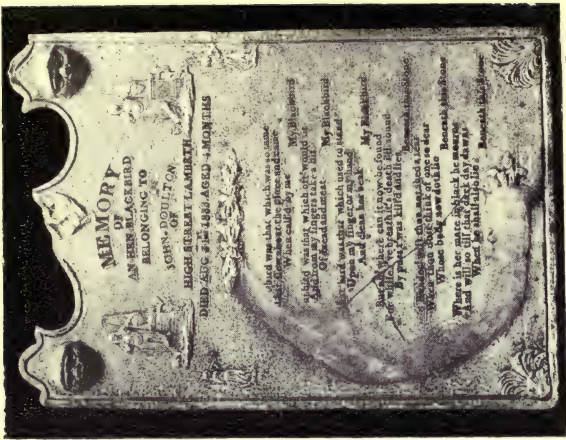 MEMORY
OF
AN HEN BLACKBIRD
BELONGING TO
JOHN·DOULTON
OF
HIGH STREET LAMBETH
DIED AUG 1833 AGED 4 MONTHS
bird was that which was so tame
about the place and came
When call'd by me My Blackbird
bird was that which oft would sit
And from my fingers take a bit
Of bread and meat My Blackbird
bird was that which used to stand
Upon my finger or my hand
And clean her beak My Blackbird
could not be found
which death did sound
By was kill'd and Beneath this Stone
thou not shed a tear
When thou dost think of one so dear
Whose body now doth lie Beneath this Stone
Where is her mate in black he mourns
And will so till that day dawns
When he shall also lie Beneath this Stone